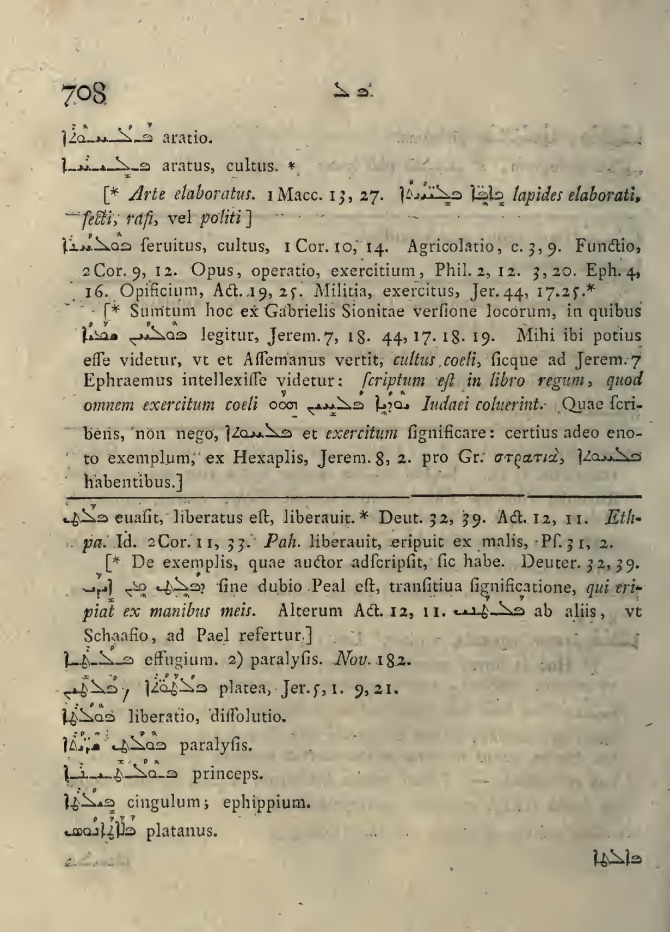 708
ܦܠ
ܦܠܚܘܬܐ aratio.
ܦܠܝܚܐ aratus, cultus. *
[* Arte elaboratus. 1 Macc. 13, 27. ܟܐܦܐ ܦܠܝܚܬܐ lapides elaborati,
ſecti, raſi, vel politi]
ܦܘܠܚܢܐ ſeruitus, cultus, 1 Cor. 10, 14. Agricolatio, c. 3, 9. Functio,
2 Cor. 9, 12. Opus, operatio, exercitium, Phil. 2, 12. 3, 20. Eph. 4,
16. Opificium, Act. 19, 25. Militia, exercitus, Jer. 44, 17. 25. *
[* Sumtum hoc ex Gabrielis Sionitae verſione locorum, in quibus
ܦܘܠܚܢ ܫܡܝܐ legitur, Jerem. 7, 18. 44, 17. 18. 19. Mihi ibi potius
eſſe videtur, vt et Aſſemanus vertit, cultus coeli, ſicque ad Jerem. 7
Ephraemus intellexiſſe videtur: ſcriptum eſt in libro regum, quod
omnem exercitum coeli ܦܠܚܝܢ ܗܘܘ Iudaei coluerint. Quae ſcri-
bens, non nego, ܦܠܚܘܬܐ et exercitum ſignificare: certius adeo eno-
to exemplum, ex Hexaplis, Jerem. 8, 2. pro Gr. στρατιά, ܦܠܚܘܬܐ
habentibus.]
ܦܠܛ euaſit, liberatus eſt, liberauit. * Deut. 32, 39. Act. 12, 11. Eth-
pa. Id. 2 Cor. 11, 33. Pah. liberauit, eripuit ex malis, Pſ. 31, 2.
[* De exemplis, quae auctor adſcripſit, ſic habe. Deuter. 32, 39.
ܕܦܠܛ ܡܢ ܐܝܕܝ ſine dubio Peal eſt, tranſitiua ſignificatione, qui eri-
piat ex manibus meis. Alterum Act. 12, 11. ܦܠܛܢܝ ab aliis, vt
Schaafio, ad Pael refertur.]
ܦܠܛܐ effugium. 2) paralyſis. Nov. 182.
platea, Jer. 5, 1. 9, 21.
ܦܘܠܛܐ liberatio, diſſolutio.
paralyſis.
princeps.
ܦܠܛܐ cingulum; ephippium.
platanus.